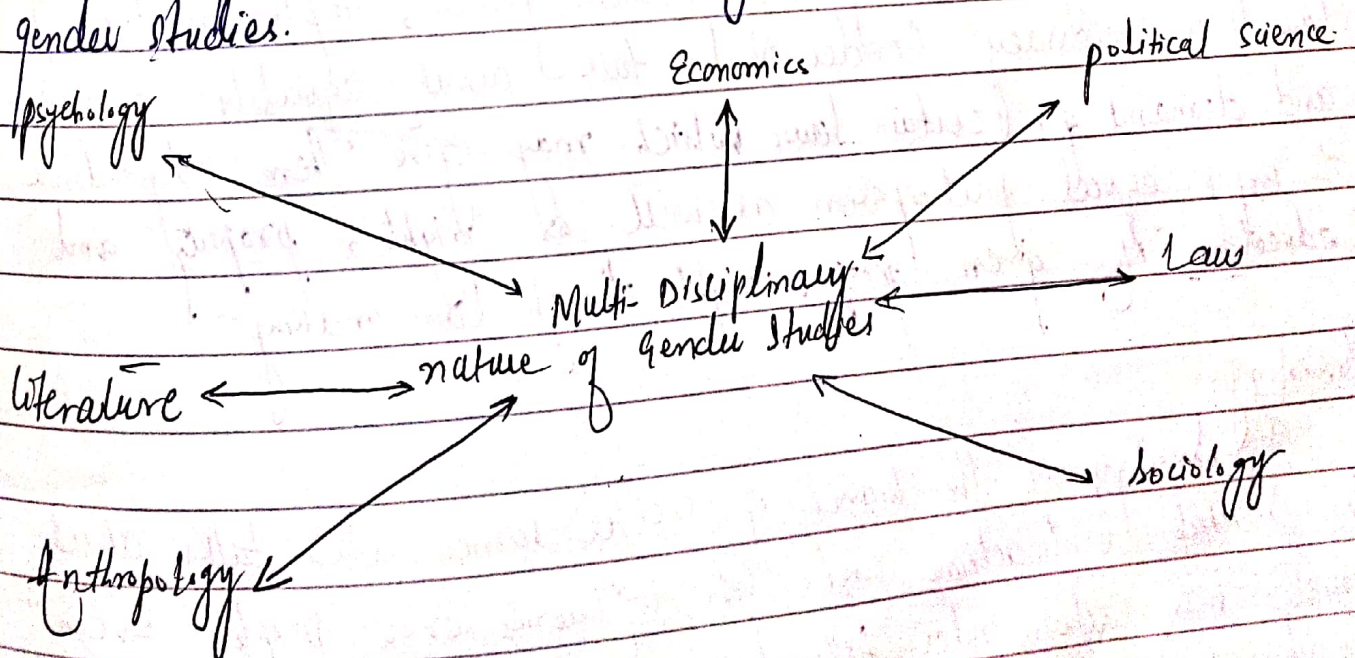 gender studies.
Economics
political science.
psychology
Multi-Disciplinary
nature of Gender Studies
Law
literature
sociology
Anthropology